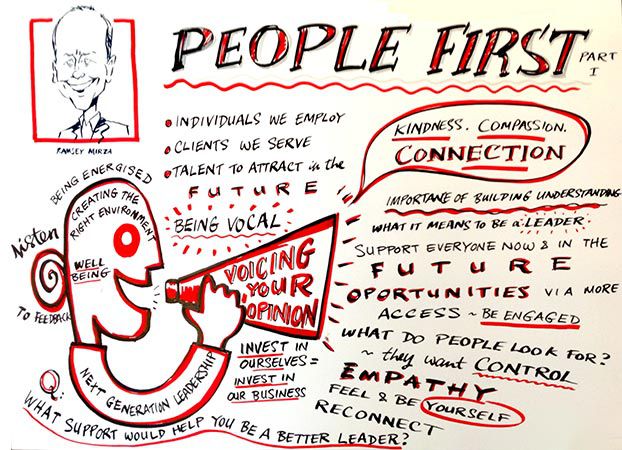 PEOPLE FIRST
PART I
RAMSEY MIRZA
INDIVIDUALS WE EMPLOY
CLIENTS WE SERVE
TALENT TO ATTRACT in the
FUTURE
BEING VOCAL
BEING ENERGISED
CREATING THE
RIGHT ENVIRONMENT
WELL
BEING
listen
TO FEEDBACK
VOICING
YOUR
OPINION
NEXT GENERATION LEADERSHIP
INVEST IN
OURSELVES =
INVEST IN
OUR BUSINESS
Q:
WHAT SUPPORT WOULD HELP YOU BE A BETTER LEADER?
KINDNESS. COMPASSION.
CONNECTION
IMPORTANCE OF BUILDING UNDERSTANDING
WHAT IT MEANS TO BE a LEADER
SUPPORT EVERYONE NOW & IN THE
FUTURE
OPORTUNITIES VIA MORE
ACCESS ~ BE ENGAGED
WHAT DO PEOPLE LOOK FOR?
~ they want CONTROL
EMPATHY
FEEL & BE YOURSELF
RECONNECT